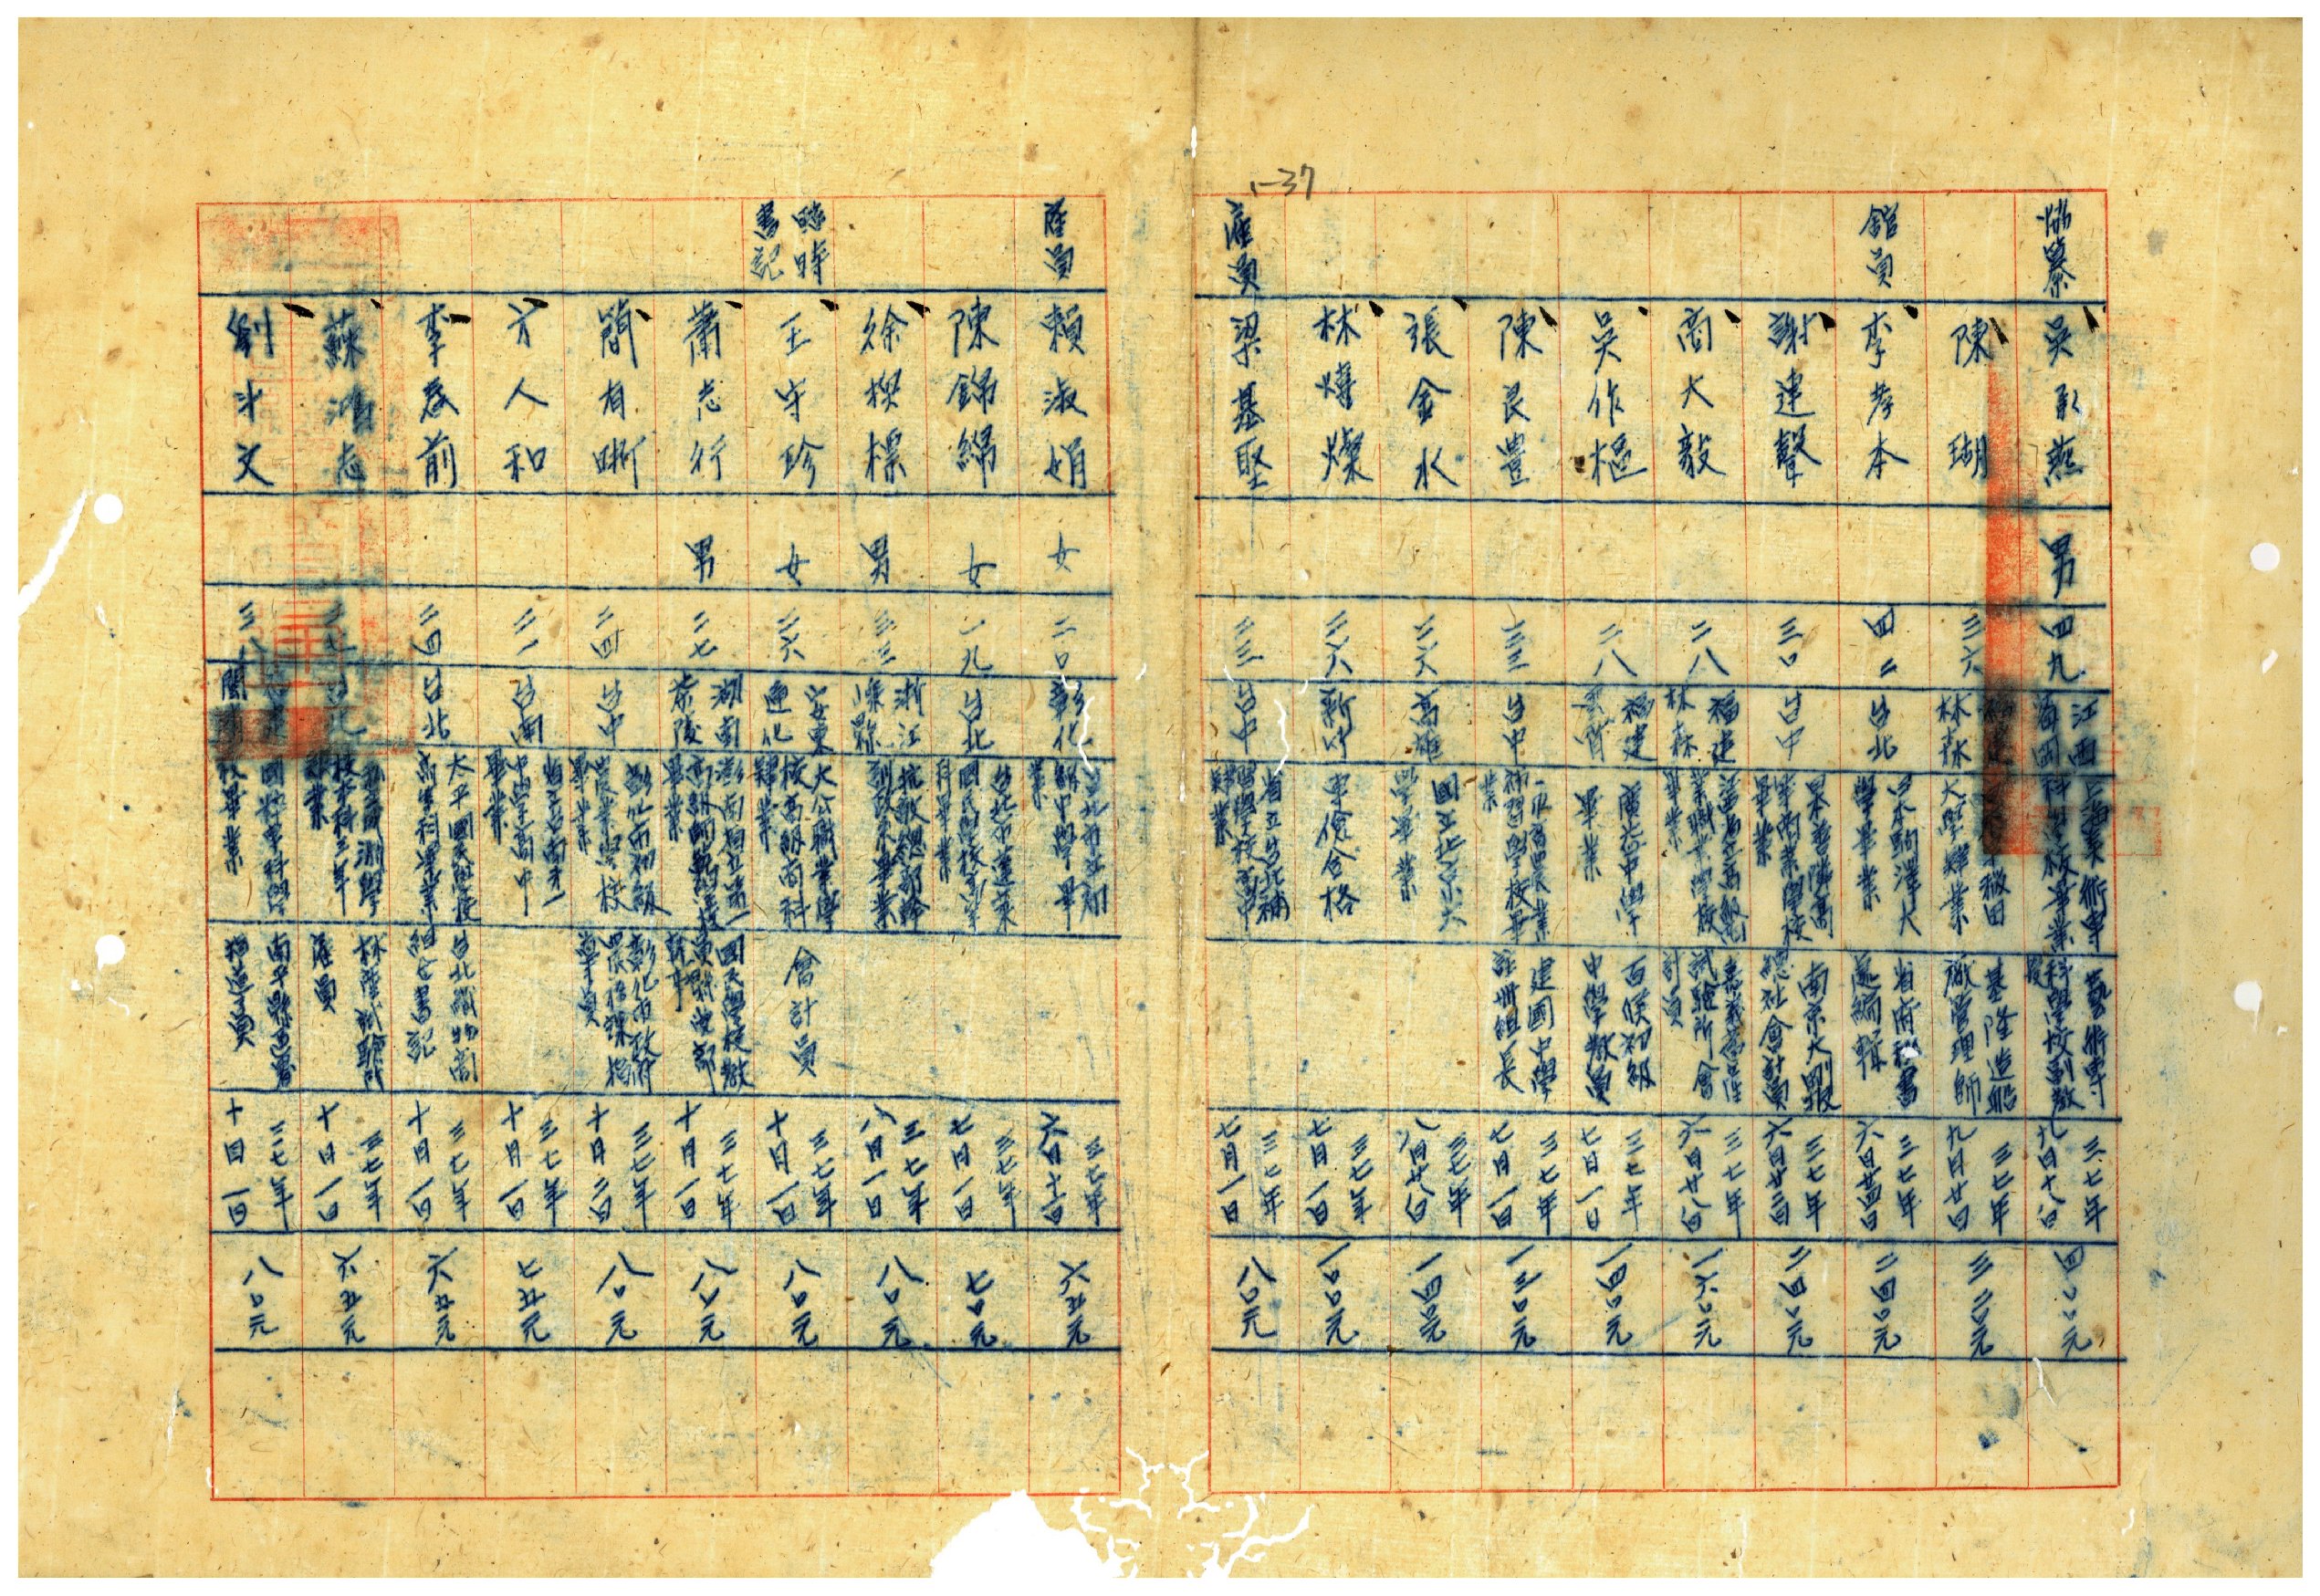 1-37
協纂 吳承燕 男 四九 江西 上海美術專科學校畢業 藝術專科學校副教授 三七年九月十八日 四〇〇元
陳瑚 三六 林森 大學畢業 基隆造船廠管理師 三七年九月廿日 三二〇元
館員 李孝本 四二 台北 日本駒澤大學畢業 省府秘書處編輯 三七年六月廿四日 二四〇元
謝連聲 三〇 台中 日本善隣高等商業學校畢業 南京大剛報總社會計員 三七年六月廿三日 二四〇元
商大毅 二八 福建林森 職業學校畢業 試驗所會計員 三七年六月廿八日 一六〇元
吳作樞 二八 福建雲霄 廣志中學畢業 百侯初級中學教員 三七年七月一日 一四〇元
陳良豊 三三 台中 農業補習學校畢業 建國中學註冊組長 三七年七月一日 一三〇元
張金水 二六 高雄 國立北京大學畢業 三七年八月廿八日 一四〇元
林燈燦 二六 新竹 專儉合格 三七年七月一日 一〇〇元
雇員 梁基堅 三三 台中 省立台北補習學校高中畢業 三七年七月一日 八〇元
雇員 賴淑娟 女 二〇 彰化 台北市立初級中學畢業 三七年六月十六日 六五元
陳錦綿 女 一九 台北 台北市蓬萊國民學校高等科畢業 三七年七月一日 七〇元
徐楔標 男 三三 浙江 畢業 三七年八月一日 八〇元
臨時書記 王守珍 女 二六 安東通化 大公職業學校高級商科畢業 會計員 三七年十月一日 八〇元
蕭志行 男 二七 湖南茶陵 湖南省立第一高級師範學校畢業 國民學校教員 三七年十月一日 八〇元
簡有晰 二四 台中 彰化市初級農業學校畢業 彰化市政府農林課指導員 三七年十月二日 八〇元
方人和 二一 台南 省立台南第一中學高中畢業 三七年十月一日 七五元
李春前 二四 台北 太平國民學校高等科畢業 台北織物商組合書記 三七年十月一日 六五元
蘇鴻志 台北 測學校本科三年畢業 林產試驗所雇員 三七年十月一日 六五元
劉斗文 三八 畢業 南平縣 指導員 三七年十月一日 八〇元